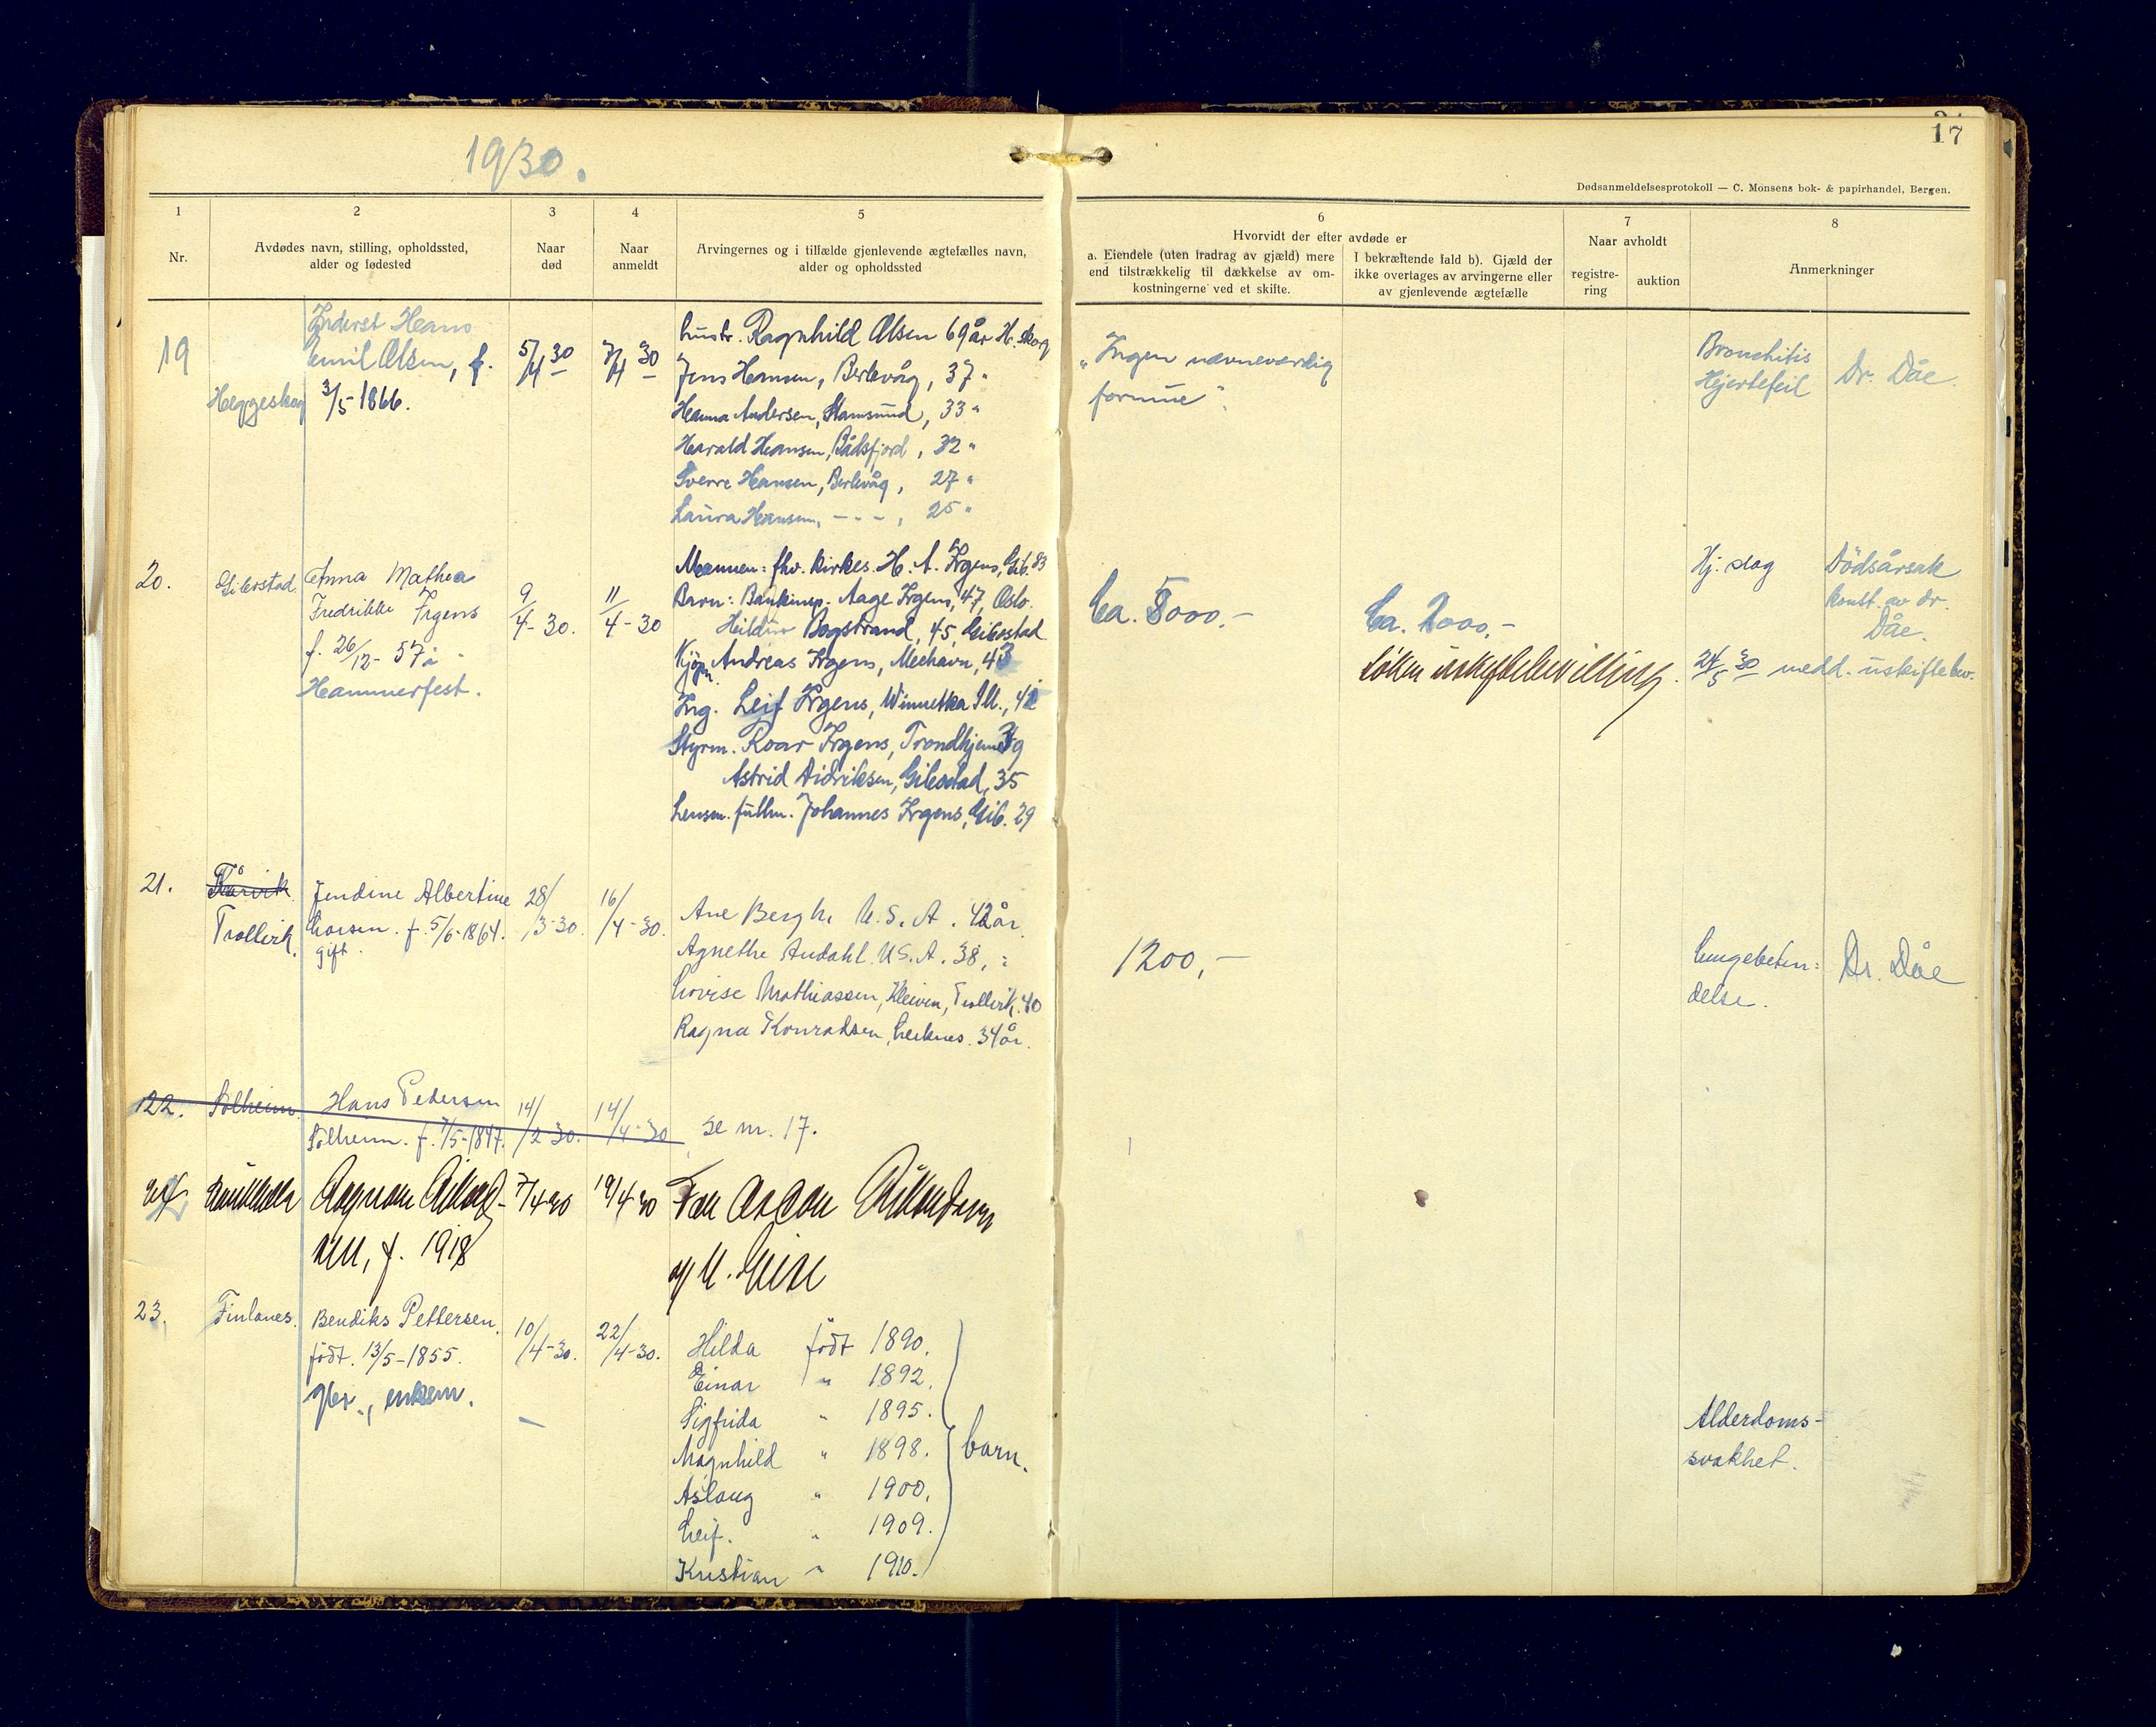 1930.
17
Dødsanmeldelsesprotokoll — C. Monsens bok- & papirhandel, Bergen.
1
2
3
4
5
6
7
8
Nr.
Avdødes navn, stilling, opholdssted,
alder og fødested
Naar
død
Naar
anmeldt
Arvingernes og i tilfælde gjenlevende ægtefælles navn,
alder og opholdssted
Hvorvidt der efter avdøde er
a. Eiendele (uten fradrag av gjæld) mere
end tilstrækkelig til dækkelse av om-
kostningerne ved et skifte.
I bekræftende fald b). Gjæld der
ikke overtages av arvingerne eller
av gjenlevende ægtefælle
Naar avholdt
registre-
ring
auktion
Anmerkninger
19
Heggeskog
Inderst Hans
Emil Olsen, f.
3/5 1866.
5/4 30
7/4 30
hustr. Ragnhild Olsen 69 år H.skog
Jens Hansen, Berlevåg, 37 "
Hanna Andersen, Stamsund, 33 "
Harald Hansen, Båtsfjord, 32 "
Sverre Hansen, Berlevåg, 27 "
Laura Hansen, - - - , 25 "
"Ingen nævneværdig
formue".
Bronchitis
Hjertefeil
Dr. Dåe.
20.
Gibostad
Anna Mathea
Fredrikke Irgens
f. 26/12- 57 i
Hammerfest.
9/4-30.
11/4-30
Mannen: fhv. kirkes. H. A. Irgens, Gib. 83
Barn: Bankinsp. Aage Irgens, 47, Oslo.
Hildur Bogstrand, 45, Gibostad
Kjøpm. Andreas Irgens, Mehavn, 43
Ing. Leif Irgens, Winnetka Ill., 41
Styrm. Roar Irgens, Trondhjem 39
Astrid Didriksen, Gibostad, 35
Lensm. fullm. Johannes Irgens, Gib. 29
Ca. 5000.-
Ca. 2000.-
Søker uskiftebevilling.
Hj. slag
Dödsårsak
konst. av dr.
Dåe.
24/5 30 medd. uskiftebev.
21.
Trollvik.
Jendine Albertine
Larsen. f. 5/6-1864.
gift.
28/3-30.
16/4-30.
Ane Bergh. U.S.A. 42 år.
Agnethe Andahl. U.S.A. 38, "
Lovise Mathiassen, Kleiven, Trollvik. 40
Ragna Konradsen, Leiknes. 34 år.
1200,-
Lungebeten=
delse.
Dr. Dåe
22.
Solheim.
Hans Pedersen
Solheim. f. 7/5-1847.
14/2-30.
14/4-30
se nr. 17.
f. 1918
7/4-30
19/4 30
23.
Finlanes.
Bendiks Pettersen.
födt. 13/5-1855.
enkem.
10/4-30.
22/4-30.
Hilda födt 1890.
Einar " 1892.
Sigfrida " 1895.
Magnhild " 1898.
Aslaug " 1900.
Leif. " 1909.
Kristian " 1910.
barn.
Alderdoms-
svakhet.